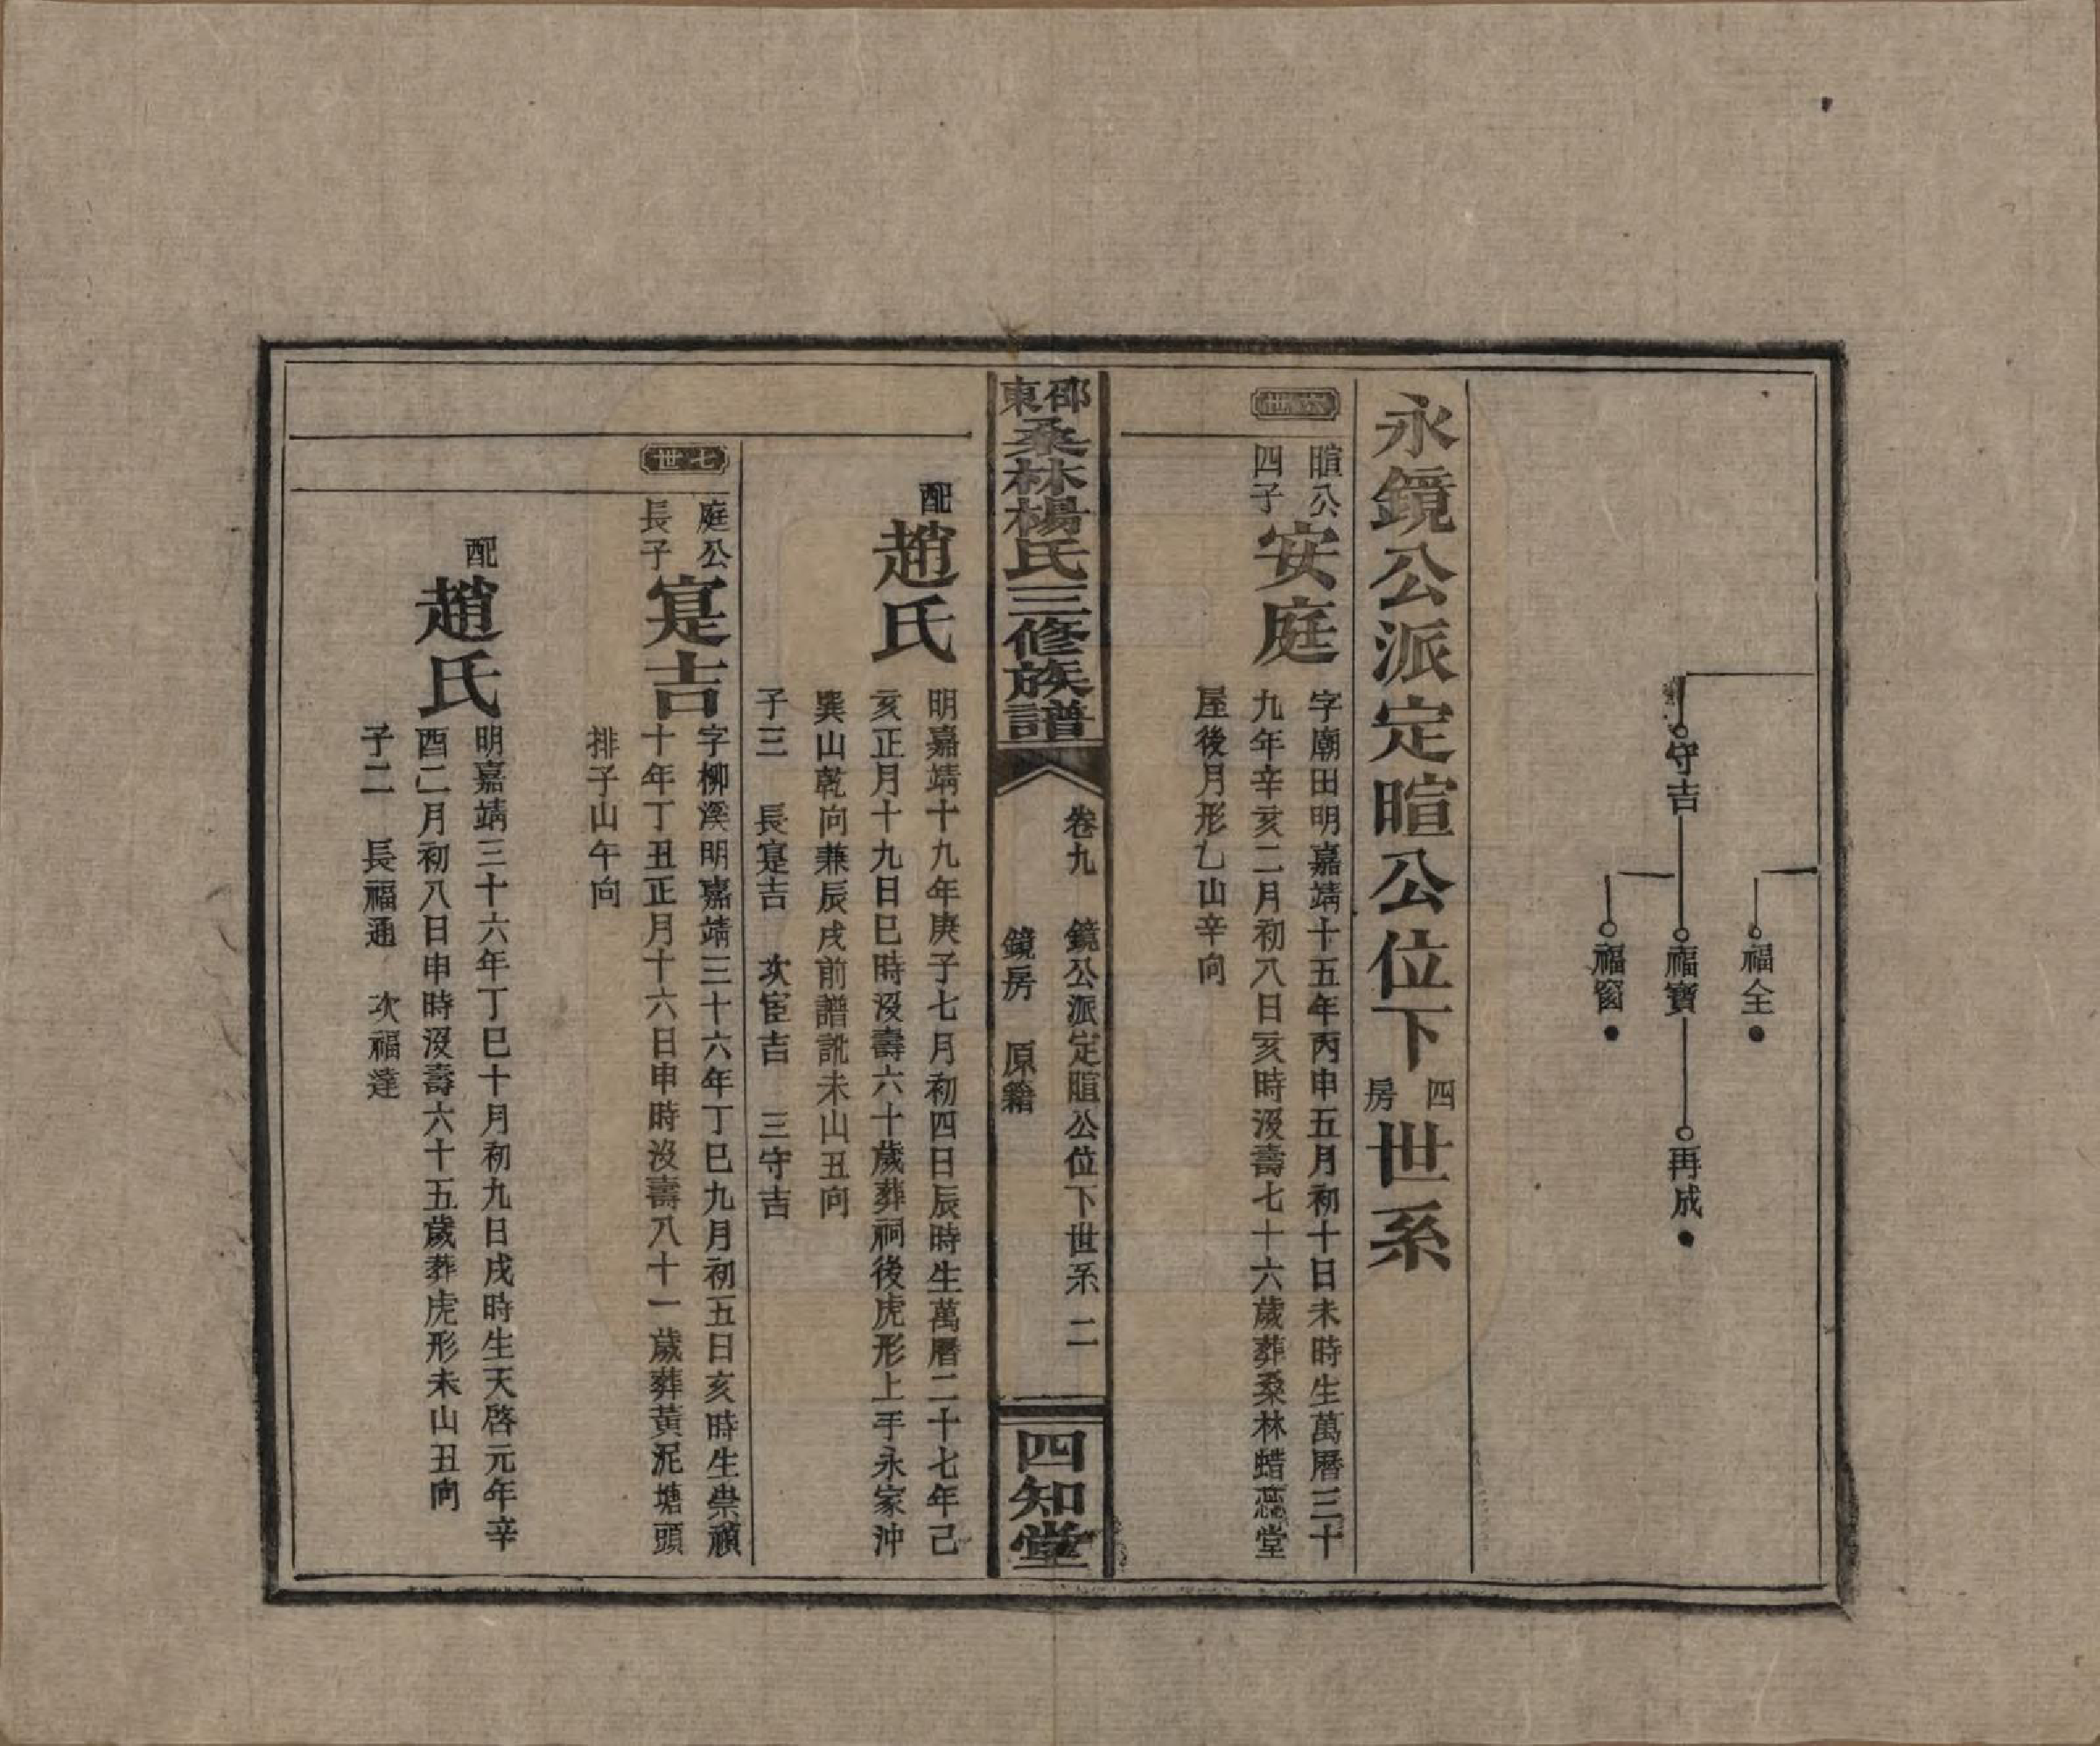 守吉
福全
福寶
福窗
再成
永鏡公派定暄公位下四房世系
六世
暄公四子
安庭
字廟田明嘉靖十五年丙申五月初十日未時生萬曆三十
九年辛亥二月初八日亥時沒壽七十六歲葬桑林蜡蕊堂
屋後月形乙山辛向
邵東桑林楊氏三修族譜
卷九 鏡公派定暄公位下世系 二
鏡房 原籍
四知堂
配
趙氏
明嘉靖十九年庚子七月初四日辰時生萬曆二十七年己
亥正月十九日巳時沒壽六十歲葬祠後虎形上手永家沖
巽山乾向兼辰戌前譜訛未山丑向
子三 長寔吉 次宦吉 三守吉
七世
庭公長子
寔吉
字柳溪明嘉靖三十六年丁巳九月初五日亥時生崇禎
十年丁丑正月十六日申時沒壽八十一歲葬黃泥塘頭
排子山午向
配
趙氏
明嘉靖三十六年丁巳十月初九日戌時生天啓元年辛
酉二月初八日申時沒壽六十五歲葬虎形未山丑向
子二 長福通 次福達